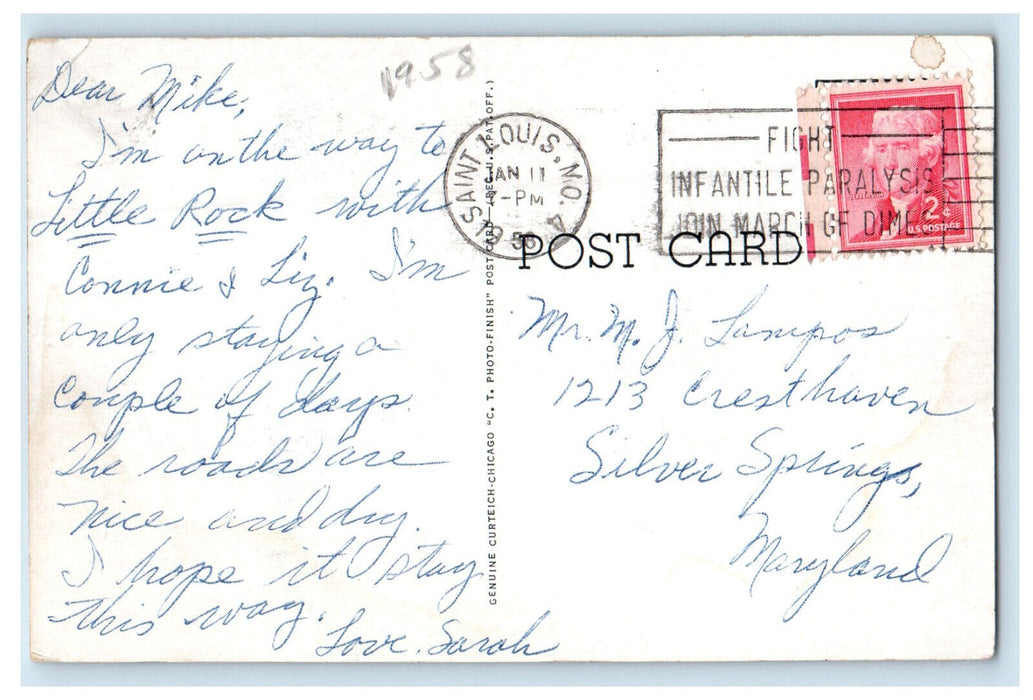 1958
Dear Mike,
I'm on the way to
Little Rock with
Connie & Liz. I'm
only staying a
couple of days.
The roads are
nice and dry.
I hope it stay
this way.
Love. Sarah
GENUINE CURTEICH-CHICAGO "C. T. PHOTO-FINISH" POST CARD (REG. U. S. PAT. OFF.)
SAINT LOUIS, MO. 4
JAN 11
-PM
FIGHT
INFANTILE PARALYSIS
JOIN MARCH OF DIMES
2¢
U.S. POSTAGE
POST CARD
Mr. M. J. Lampos
1213 Cresthaven
Silver Springs,
Maryland